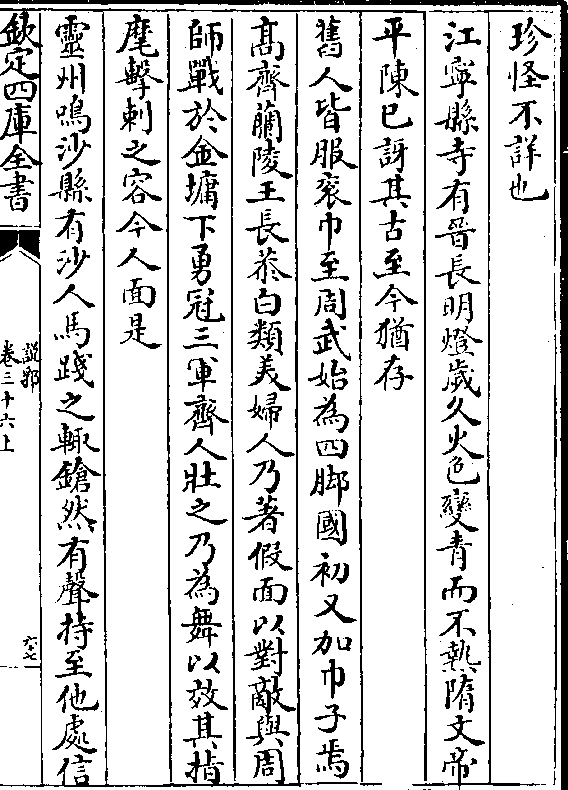 珍怪不詳也
江寧縣寺有晉長明燈歲久火色變青而不熱隋文帝
平陳已訝其古至今猶存
舊人皆服衮巾至周武始為四脚國初又加巾子焉
髙齊蘭陵王長恭白類美婦人乃著假面以對敵與周
師戰於金墉下勇冠三軍齊人壯之乃為舞以效其指
麾擊刺之容今人面是
靈州鳴沙縣有沙人馬踐之輙鎗然有聲持至他處信
欽定四庫全書
說郛
卷三十六上
六七